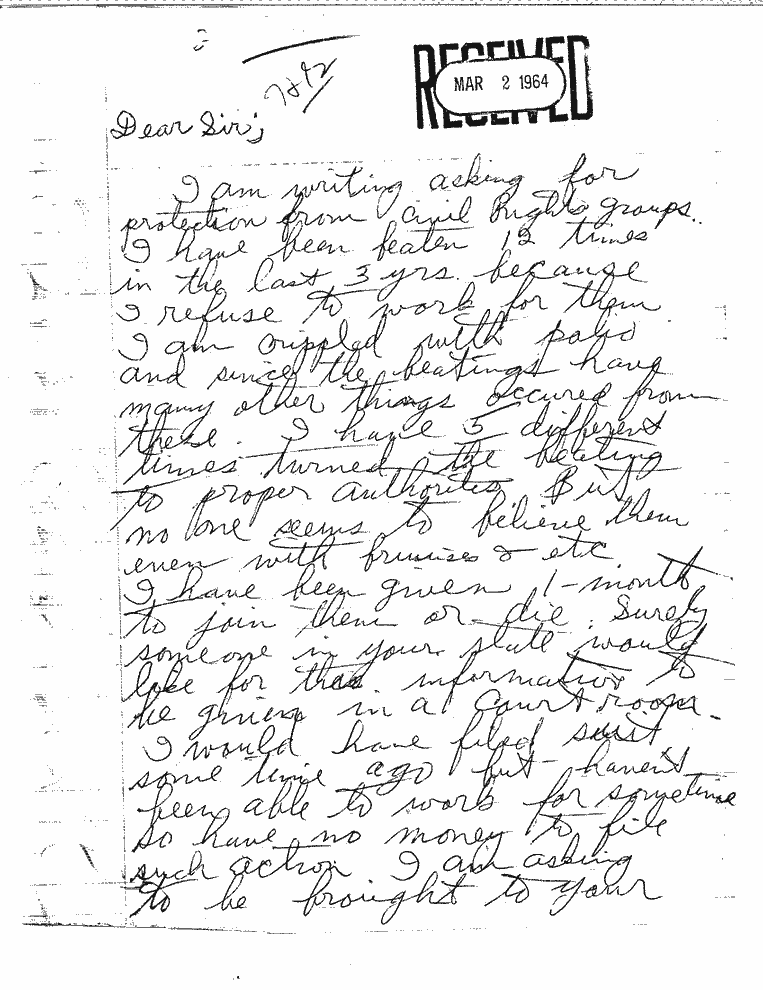 RECEIVED
MAR 2 1964
Dear Sir;
I am writing asking for
protection from Civil Rights groups.
I have been beaten 12 times
in the last 3 yrs. because
I refuse to work for them
I am crippled with polio
and since the beatings have
many other things occured from
these. I have 5 different
times turned the beating
to proper authorites But
no one seems to believe them
even with bruises & etc
I have been given 1-month
to join them or die. Surely
someone in your state would
like for this information to
be given in a Court room.
I would have filed suit
some time ago but haven't
been able to work for sometime
so have no money to file
such action I am asking
to be brought to your